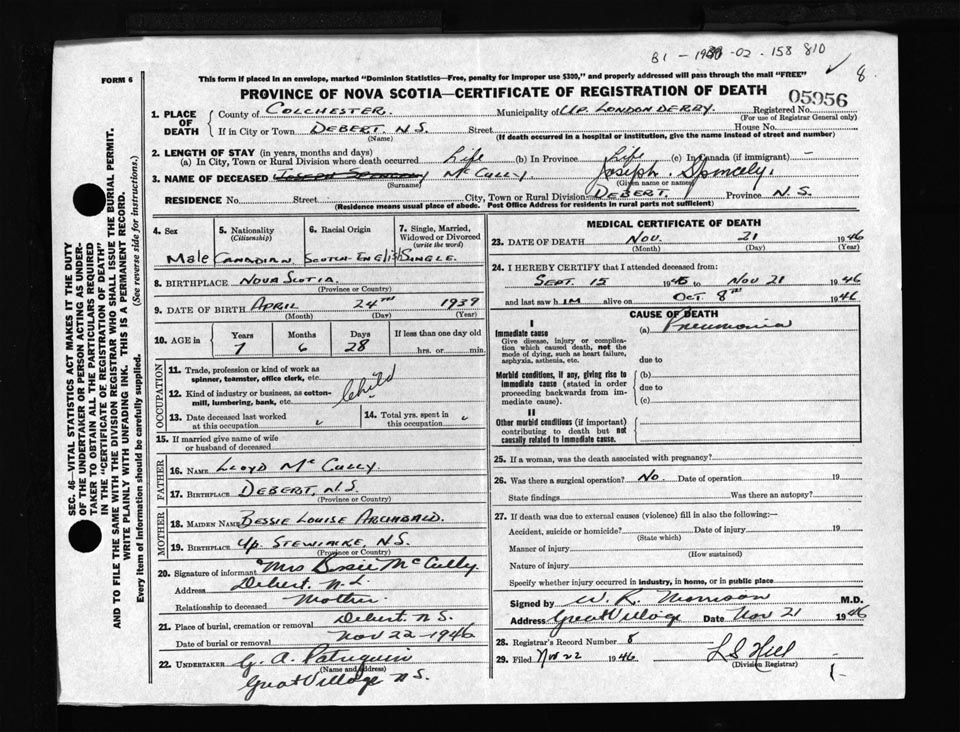 B1 - 1939 - 02 - 158 810
✓ 8.
FORM 6
This form if placed in an envelope, marked "Dominion Statistics—Free, penalty for improper use $300," and properly addressed will pass through the mail "FREE"
PROVINCE OF NOVA SCOTIA—CERTIFICATE OF REGISTRATION OF DEATH
05956
1. PLACE OF DEATH { County of COLCHESTER. Municipality of UP. LONDONDERRY. Registered No.
(For use of Registrar General only)
If in City or Town DEBERT. N.S. Street House No.
(Name) (If death occurred in a hospital or institution, give the name instead of street and number)
2. LENGTH OF STAY (in years, months and days)
(a) In City, Town or Rural Division where death occurred Life (b) In Province Life (c) In Canada (if immigrant) —
3. NAME OF DECEASED McCULLY. Joseph
(Surname) (Given name or names)
RESIDENCE No. Street City, Town or Rural Division DEBERT, Province N.S.
(Residence means usual place of abode. Post Office Address for residents in rural parts not sufficient)
4. Sex
Male
5. Nationality
(Citizenship)
CANADIAN
6. Racial Origin
SCOTCH-ENGLISH
7. Single, Married, Widowed or Divorced
(write the word)
SINGLE.
8. BIRTHPLACE NOVA SCOTIA.
(Province or Country)
9. DATE OF BIRTH APRIL 24TH 1939
(Month) (Day) (Year)
10. AGE in Years Months Days If less than one day old
7 6 28 hrs. or min.
OCCUPATION
11. Trade, profession or kind of work as spinner, teamster, office clerk, etc.
12. Kind of industry or business, as cotton-mill, lumbering, bank, etc. Child
13. Date deceased last worked at this occupation "
14. Total yrs. spent in this occupation "
15. If married give name of wife or husband of deceased
FATHER
16. NAME LLOYD McCULLY.
17. BIRTHPLACE DEBERT, N.S.
(Province or Country)
MOTHER
18. MAIDEN NAME BESSIE LOUISE ARCHIBALD.
19. BIRTHPLACE UP. STEWIACKE, N.S.
(Province or Country)
20. Signature of informant Mrs Bessie McCully.
Address Debert N.S.
Relationship to deceased Mother.
21. Place of burial, cremation or removal Debert. N.S.
Date of burial or removal Nov 22 - 1946
22. UNDERTAKER G. A. Patriquin
(Name and address)
Great Village N.S.
MEDICAL CERTIFICATE OF DEATH
23. DATE OF DEATH Nov. 21 1946
(Month) (Day) (Year)
24. I HEREBY CERTIFY that I attended deceased from:
Sept. 15 1945 to Nov 21 1946
and last saw h im alive on Oct 8th 1946
CAUSE OF DEATH
I
Immediate cause (a) Pneumonia
Give disease, injury or complication which caused death, not the mode of dying, such as heart failure, asphyxia, asthenia, etc.
due to
Morbid conditions, if any, giving rise to immediate cause (stated in order proceeding backwards from immediate cause).
(b)
due to
(c)
II
Other morbid conditions (if important) contributing to death but not causally related to immediate cause.
25. If a woman, was the death associated with pregnancy?
26. Was there a surgical operation? No. Date of operation 19
State findings Was there an autopsy?
27. If death was due to external causes (violence) fill in also the following:—
Accident, suicide or homicide? Date of injury 19
(State which)
Manner of injury
(How sustained)
Nature of injury
Specify whether injury occurred in industry, in home, or in public place
Signed by W. R. Morrison M.D.
Address Great Village Date Nov 21 1946
28. Registrar's Record Number 8
29. Filed Nov 22 1946 L S Hill
(Division Registrar)
1-
SEC. 46—VITAL STATISTICS ACT MAKES IT THE DUTY
OF THE UNDERTAKER OR PERSON ACTING AS UNDERTAKER TO OBTAIN ALL THE PARTICULARS REQUIRED
IN THE "CERTIFICATE OF REGISTRATION OF DEATH"
AND TO FILE THE SAME WITH THE DIVISION REGISTRAR WHO SHALL ISSUE THE BURIAL PERMIT.
WRITE PLAINLY WITH UNFADING INK. THIS IS A PERMANENT RECORD.
Every item of information should be carefully supplied. (See reverse side for instructions.)